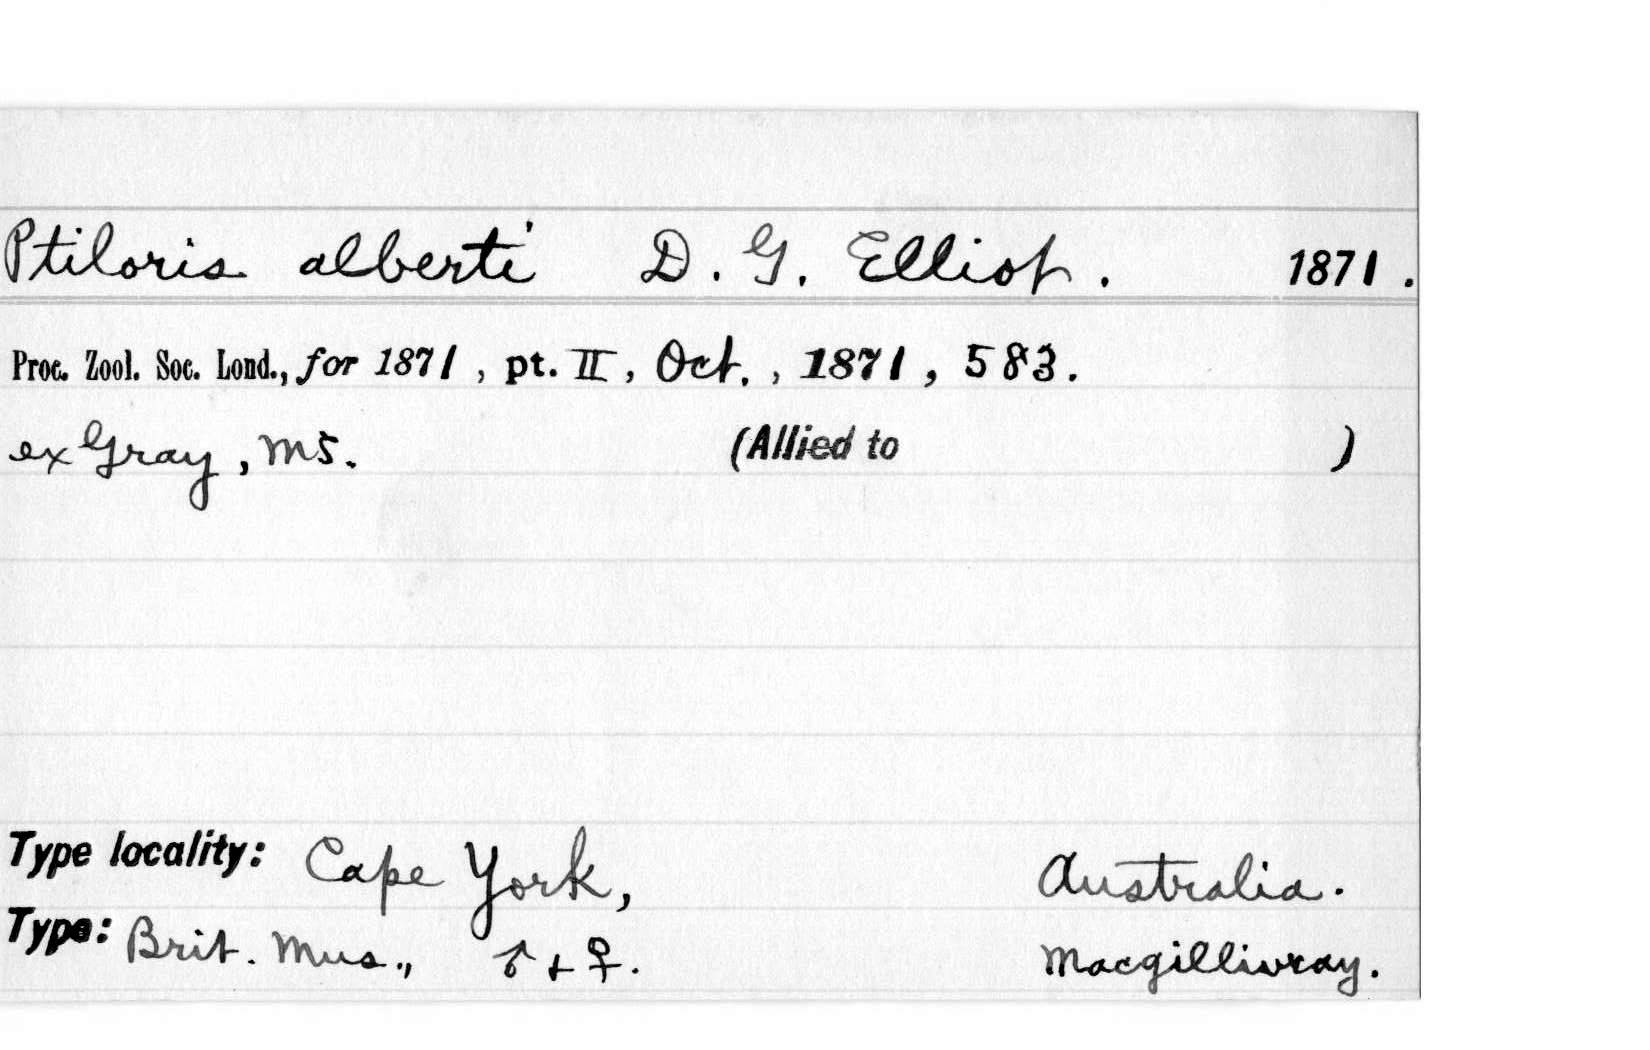 Ptiloris alberti D. G. Elliot. 1871.
Proc. Zool. Soc. Lond., for 1871, pt. II, Oct., 1871, 583.
ex Gray, MS. (Allied to )
Type locality: Cape York, Australia.
Type: Brit. Mus., ♂ + ♀. Macgillivray.